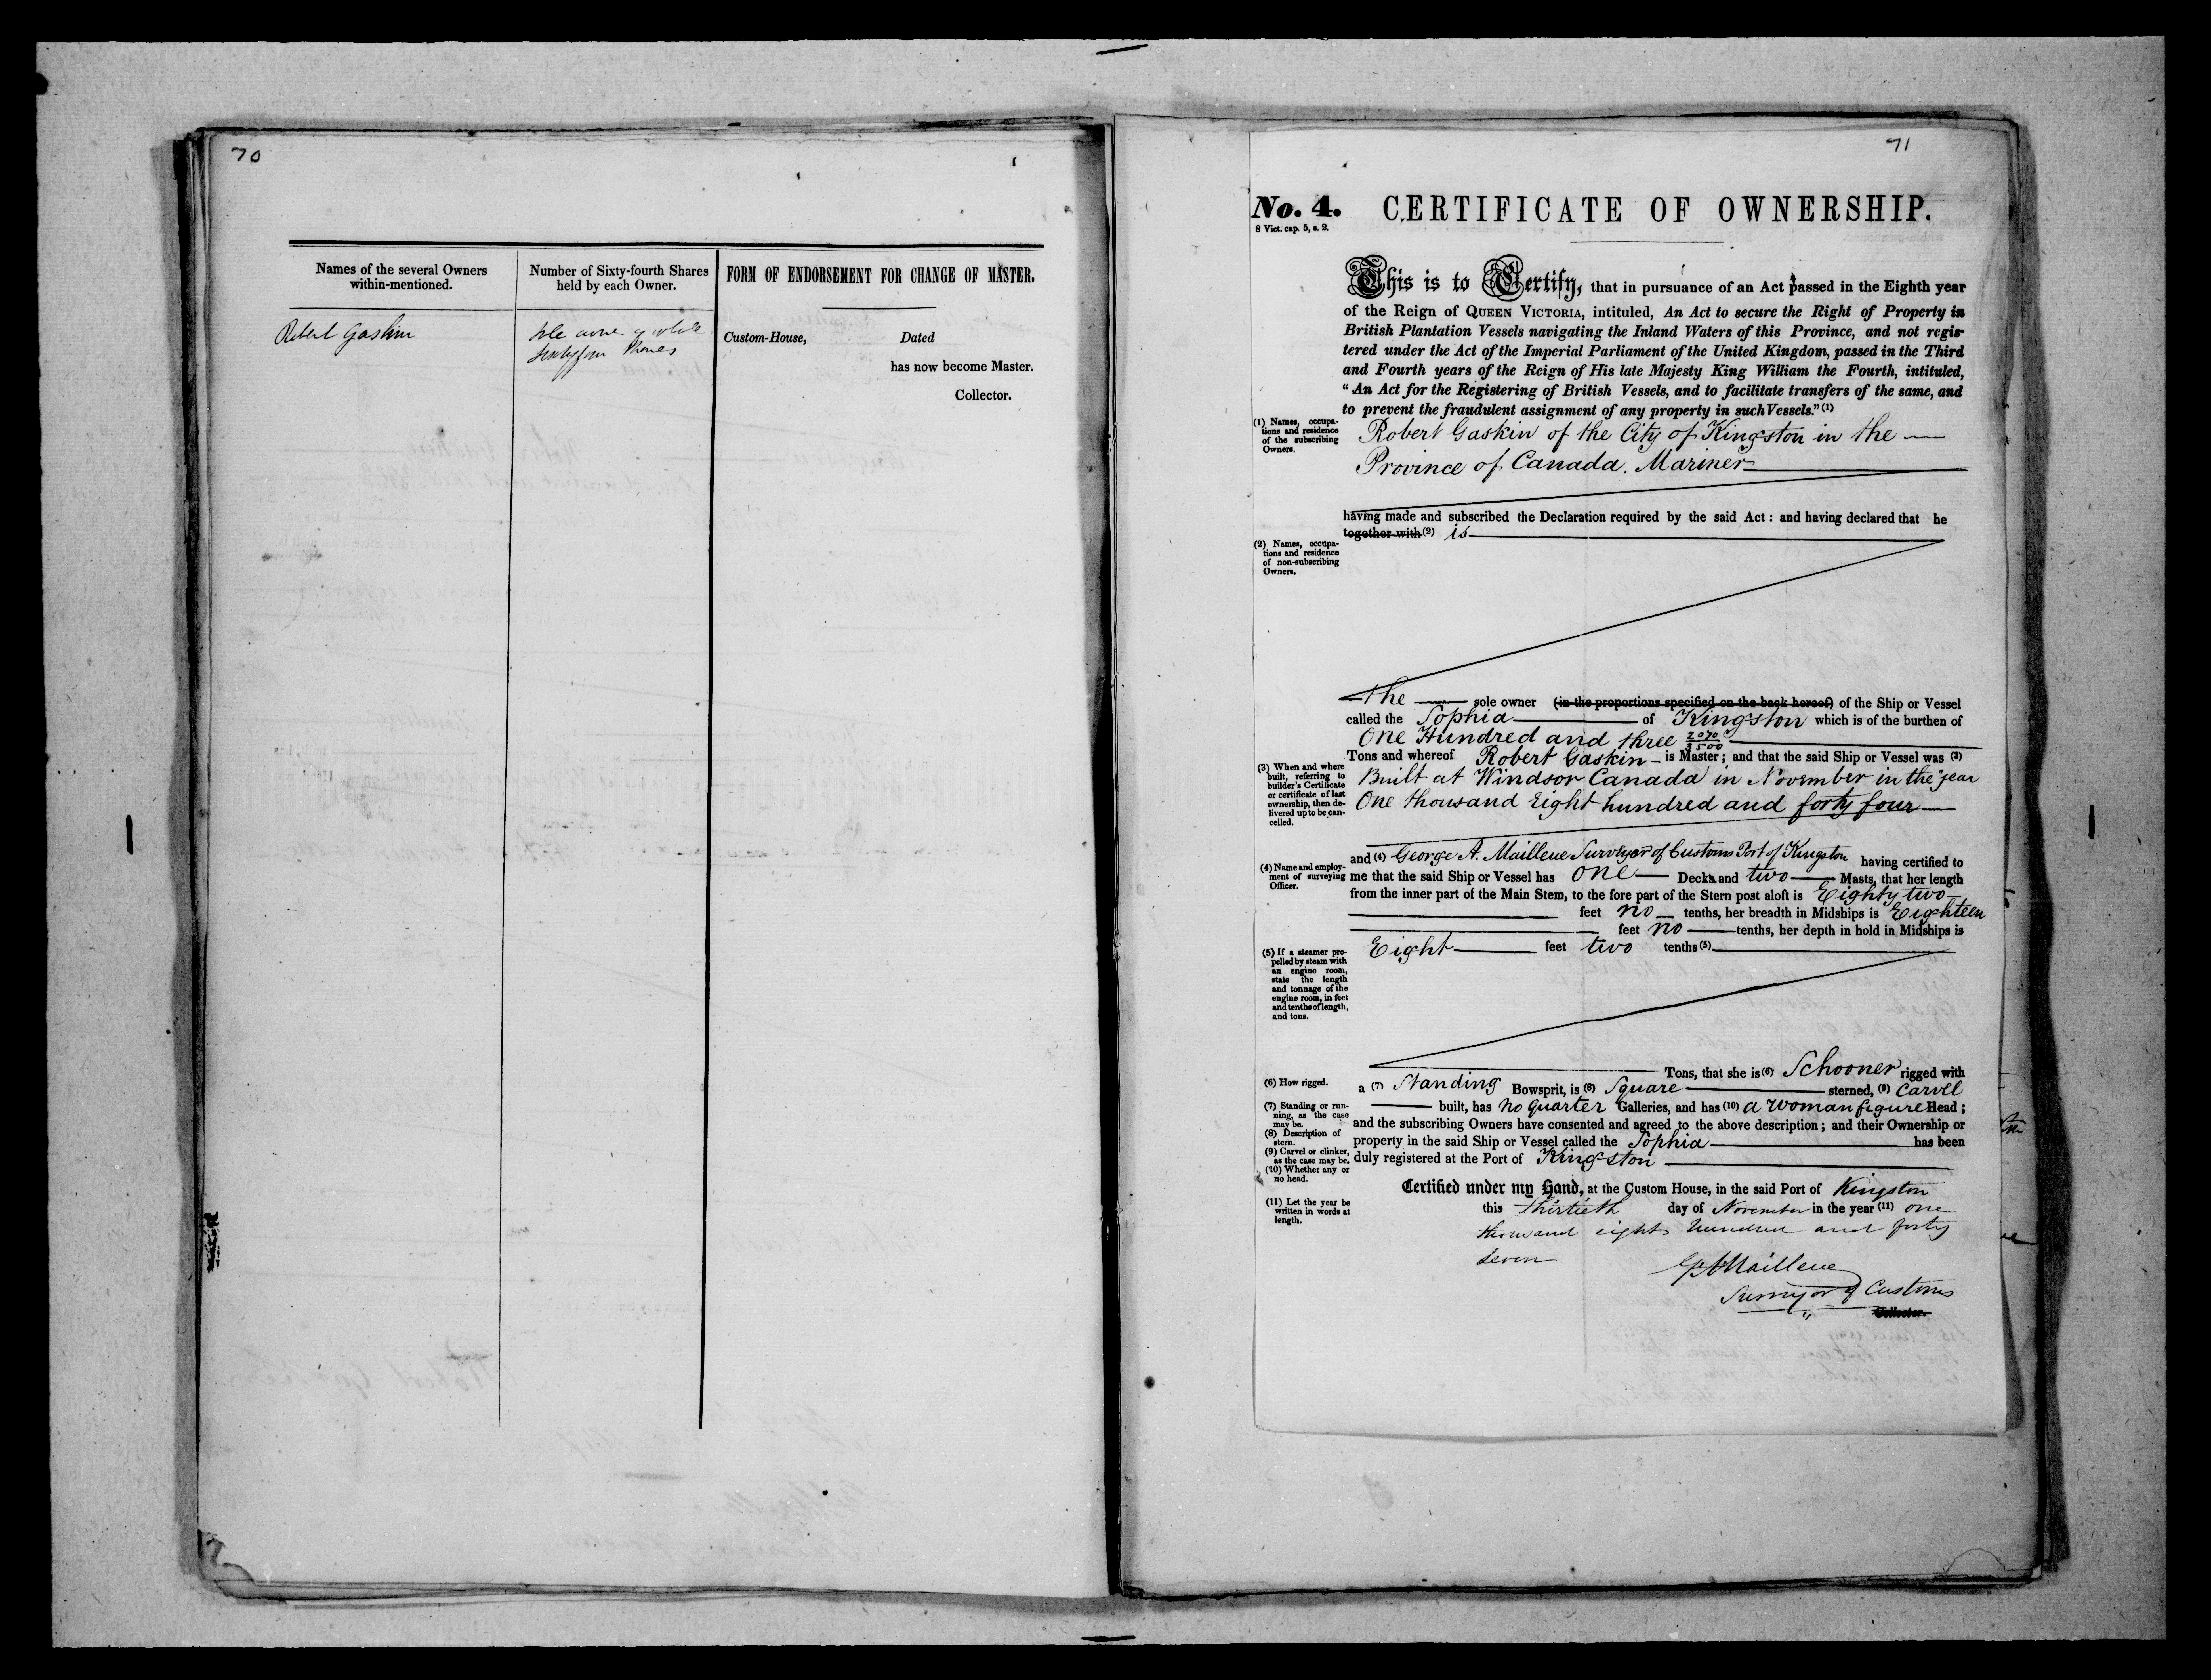 70
Names of the several Owners
within-mentioned.
Number of Sixty-fourth Shares
held by each Owner.
FORM OF ENDORSEMENT FOR CHANGE OF MASTER.
Robert Gaskin
Sole owner of whole
Sixtyfour Shares
Custom-House, Dated
has now become Master.
Collector.
71
No. 4. CERTIFICATE OF OWNERSHIP.
8 Vict. cap. 5, s. 2.
This is to Certify, that in pursuance of an Act passed in the Eighth year
of the Reign of QUEEN VICTORIA, intituled, An Act to secure the Right of Property in
British Plantation Vessels navigating the Inland Waters of this Province, and not regis-
tered under the Act of the Imperial Parliament of the United Kingdom, passed in the Third
and Fourth years of the Reign of His late Majesty King William the Fourth, intituled,
"An Act for the Registering of British Vessels, and to facilitate transfers of the same, and
to prevent the fraudulent assignment of any property in such Vessels." (1)
(1) Names, occupa-
tions and residence
of the subscribing
Owners.
Robert Gaskin of the City of Kingston in the
Province of Canada. Mariner
having made and subscribed the Declaration required by the said Act: and having declared that he
together with (2) is
(2) Names, occupa-
tions and residence
of non-subscribing
Owners.
the sole owner (in the proportions specified on the back hereof) of the Ship or Vessel
called the Sophia of Kingston which is of the burthen of
One Hundred and three 2070/3500
Tons and whereof Robert Gaskin is Master; and that the said Ship or Vessel was (3)
(3) When and where
built, referring to
builder's Certificate
or certificate of last
ownership, then de-
livered up to be can-
celled.
Built at Windsor Canada in November in the year
One thousand Eight hundred and forty four
and (4) George A. Mailleue Surveyor of Customs Port of Kingston having certified to
(4) Name and employ-
ment of surveying
Officer.
me that the said Ship or Vessel has one Decks and two Masts, that her length
from the inner part of the Main Stem, to the fore part of the Stern post aloft is Eighty two
feet no tenths, her breadth in Midships is Eighteen
feet no tenths, her depth in hold in Midships is
Eight feet two tenths (5)
(5) If a steamer pro-
pelled by steam with
an engine room,
state the length
and tonnage of the
engine room, in feet
and tenths of length,
and tons.
Tons, that she is (6) Schooner rigged with
(6) How rigged.
a (7) Standing Bowsprit, is (8) Square sterned, (9) Carvel
(7) Standing or run-
ning, as the case
may be.
built, has no quarter Galleries, and has (10) a woman figure Head;
and the subscribing Owners have consented and agreed to the above description; and their Ownership or
(8) Description of
stern.
property in the said Ship or Vessel called the Sophia has been
(9) Carvel or clinker,
as the case may be.
duly registered at the Port of Kingston
(10) Whether any or
no head.
Certified under my Hand, at the Custom House, in the said Port of Kingston
(11) Let the year be
written in words at
length.
this Thirtieth day of November in the year (11) one
thousand eight hundred and forty
seven
G A Mailleue
Surveyor of Customs
Collector.